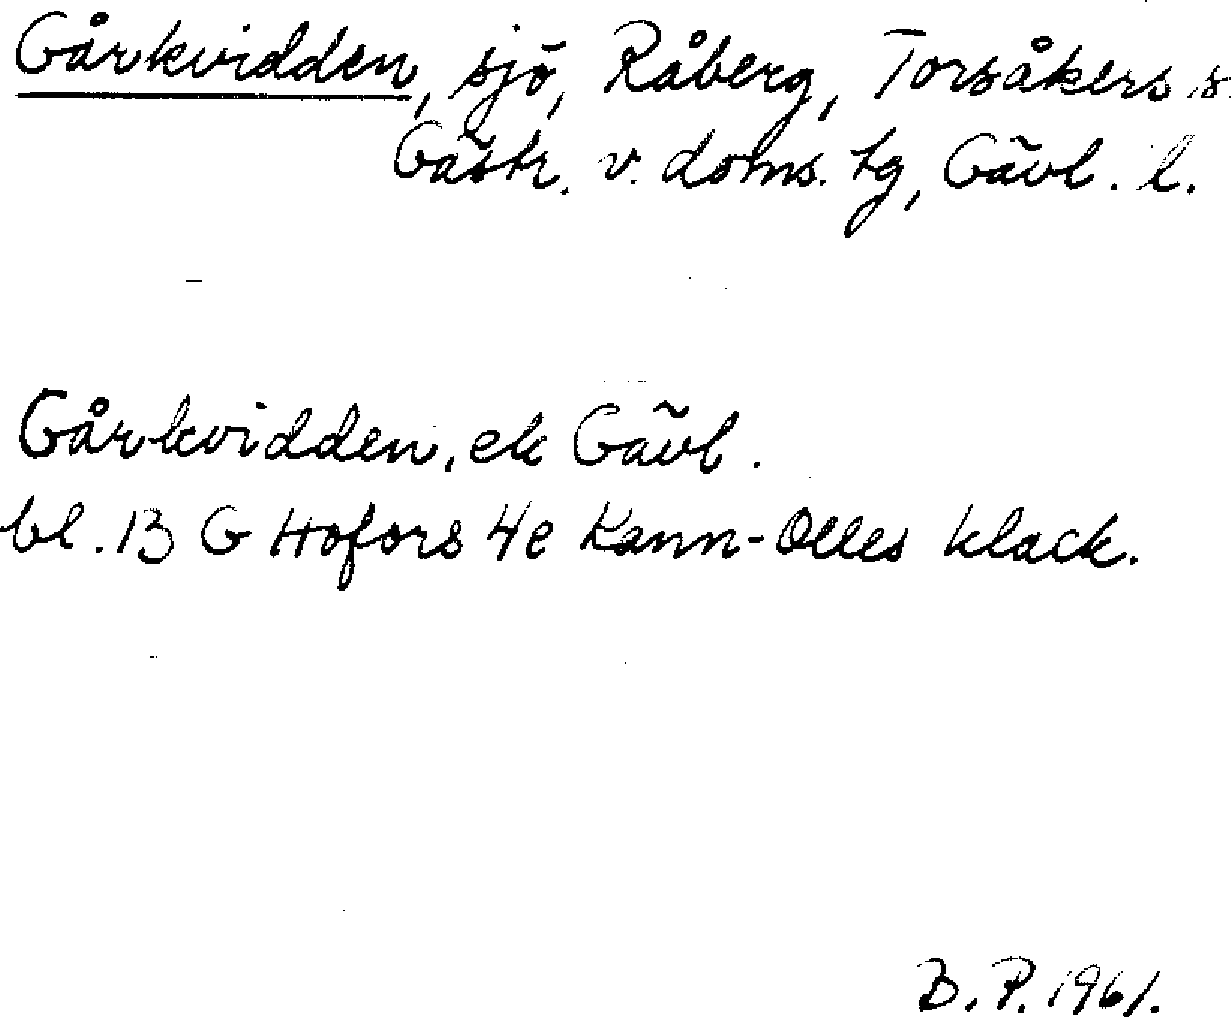 Gårkvidden, sjö, Råberg, Torsåkers s.
Gästr. v. doms. tg, Gävl. l.
Gårkvidden, ek Gävl.
bl. 13 G Hofors 4e Kann-Olles klack.
B. P. 1961.